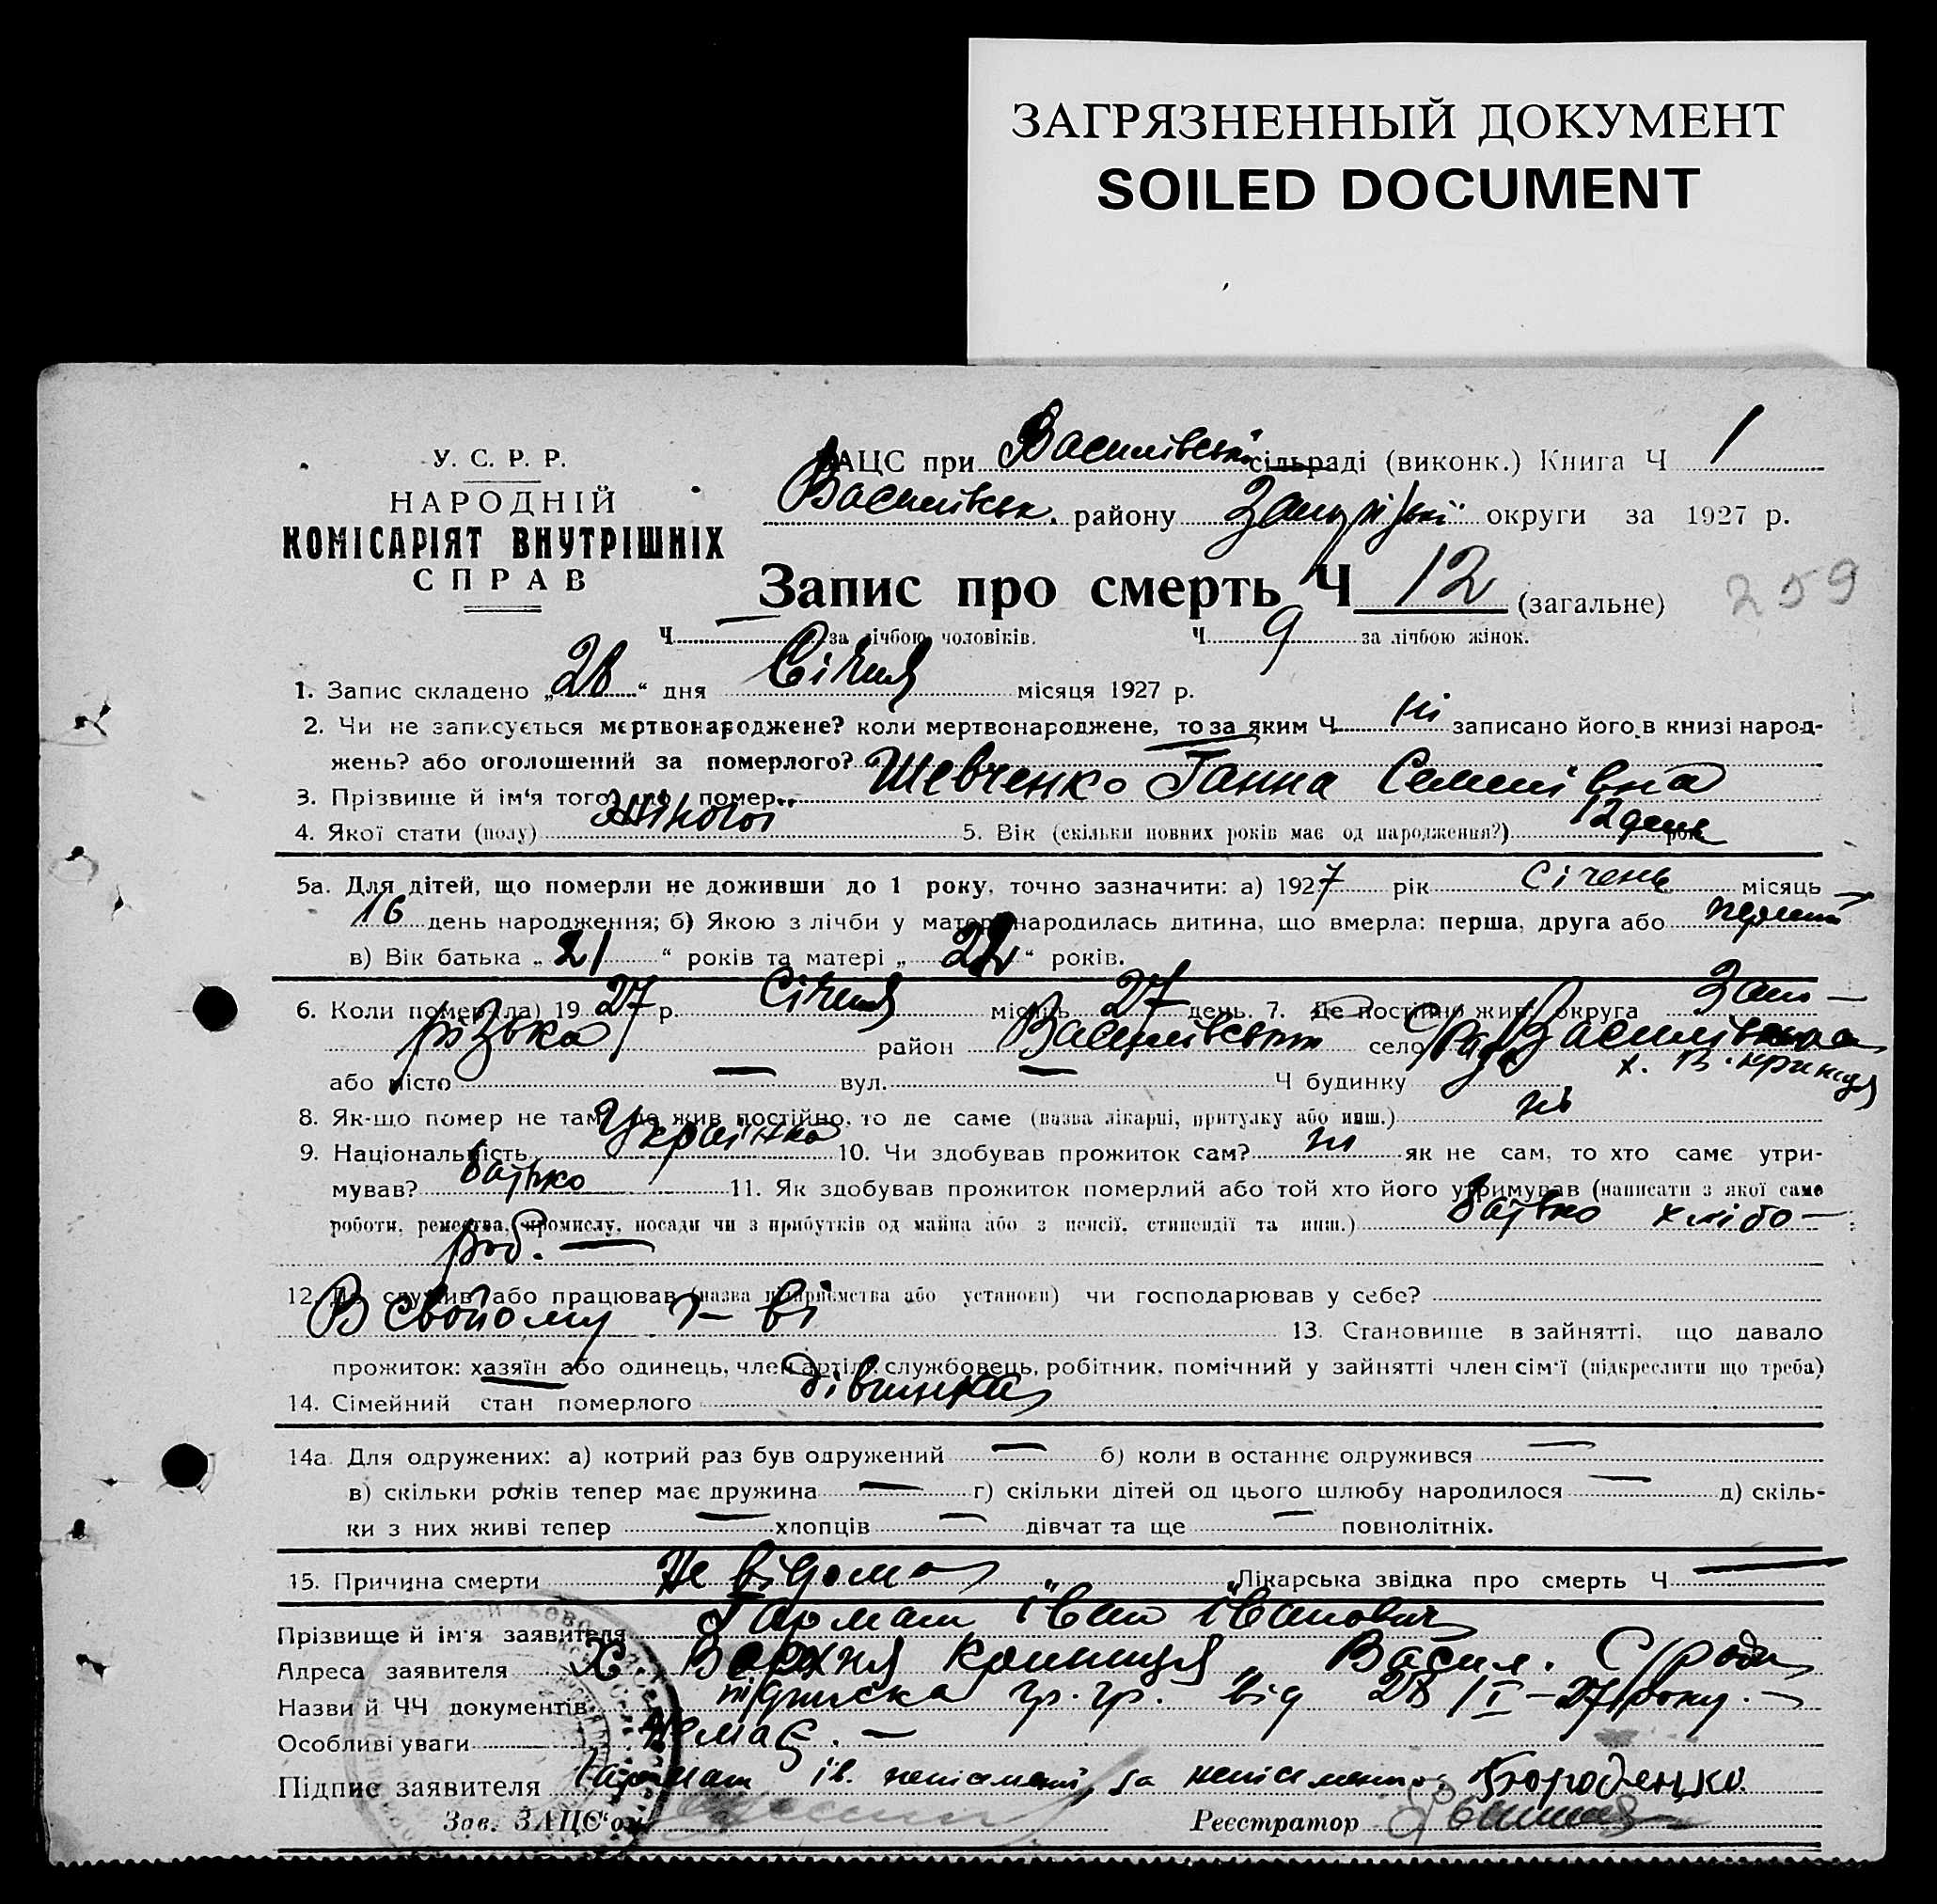 ЗАГРЯЗНЕННЫЙ ДОКУМЕНТ
SOILED DOCUMENT
У. С. Р. Р.
НАРОДНІЙ
КОМІСАРІЯТ ВНУТРІШНІХ
СПРАВ
ЗАЦС при Василівськ. сільраді (виконк.) Книга Ч 1
Василівськ. району Запорізької округи за 1927 р.
Запис про смерть Ч 12 (загальне)
259
Ч — за лічбою чоловіків. Ч 9 за лічбою жінок.
1. Запис складено „28“ дня Січня місяця 1927 р.
2. Чи не записується мертвонароджене? коли мертвонароджене, то за яким Ч ні записано його в книзі народ-
жень? або оголошений за померлого?
3. Прізвище й ім'я того, що помер Шевченко Ганна Семенівна
4. Якої стати (полу) Жіночої 5. Вік (скільки повних років має од народження?) 12 день рок
5а. Для дітей, що померли не доживши до 1 року, точно зазначити: а) 1927 рік Січень місяць
16 день народження; б) Якою з лічби у матері народилась дитина, що вмерла: перша, друга або перший
в) Вік батька „21“ років та матері „22“ років.
6. Коли помер(ла) 1927 р. Січня місяць 27 день. 7. Де постійно жив: округа Запо-
різька район Василівський село С/рада Василівська
або місто — вул. — Ч будинку х. В. криниця
8. Як-що помер не там, де жив постійно, то де саме (назва лікарні, притулку або инш.) ні
9. Національність Українка 10. Чи здобував прожиток сам? ні як не сам, то хто саме утри-
мував? батько 11. Як здобував прожиток померлий або той хто його утримував (написати з якої саме
роботи, ремества, промислу, посади чи з прибутків од майна або з пенсії, стипендії та инш.) батько хлібо-
роб. —
12. Де служив або працював (назва підприємства або установи) чи господарював у себе?
В свойому г-ві 13. Становище в зайнятті, що давало
прожиток: хазяїн або одинець, член артілі, службовець, робітник, помічний у зайнятті член сім'ї (підкреслити що треба)
14. Сімейний стан померлого дівчинка
14а. Для одружених: а) котрий раз був одружений — б) коли в останнє одружився —
в) скільки років тепер має дружина — г) скільки дітей од цього шлюбу народилося — д) скіль-
ки з них живі тепер — хлопців — дівчат та ще — повнолітніх.
15. Причина смерти Не відома Лікарська звідка про смерть Ч —
Прізвище й ім'я заявителя Гармаш Іван Іванович
Адреса заявителя Х. Верхня Криниця Васил. С/ради
Назви й ЧЧ документів підписка гр. гр. від 28/I–27 року. —
Особливі уваги Немає. —
Підпис заявителя Гармаш Ів. неписьмений, за неписьменого Бороденко
Зав. ЗАЦС'ом Реєстратор